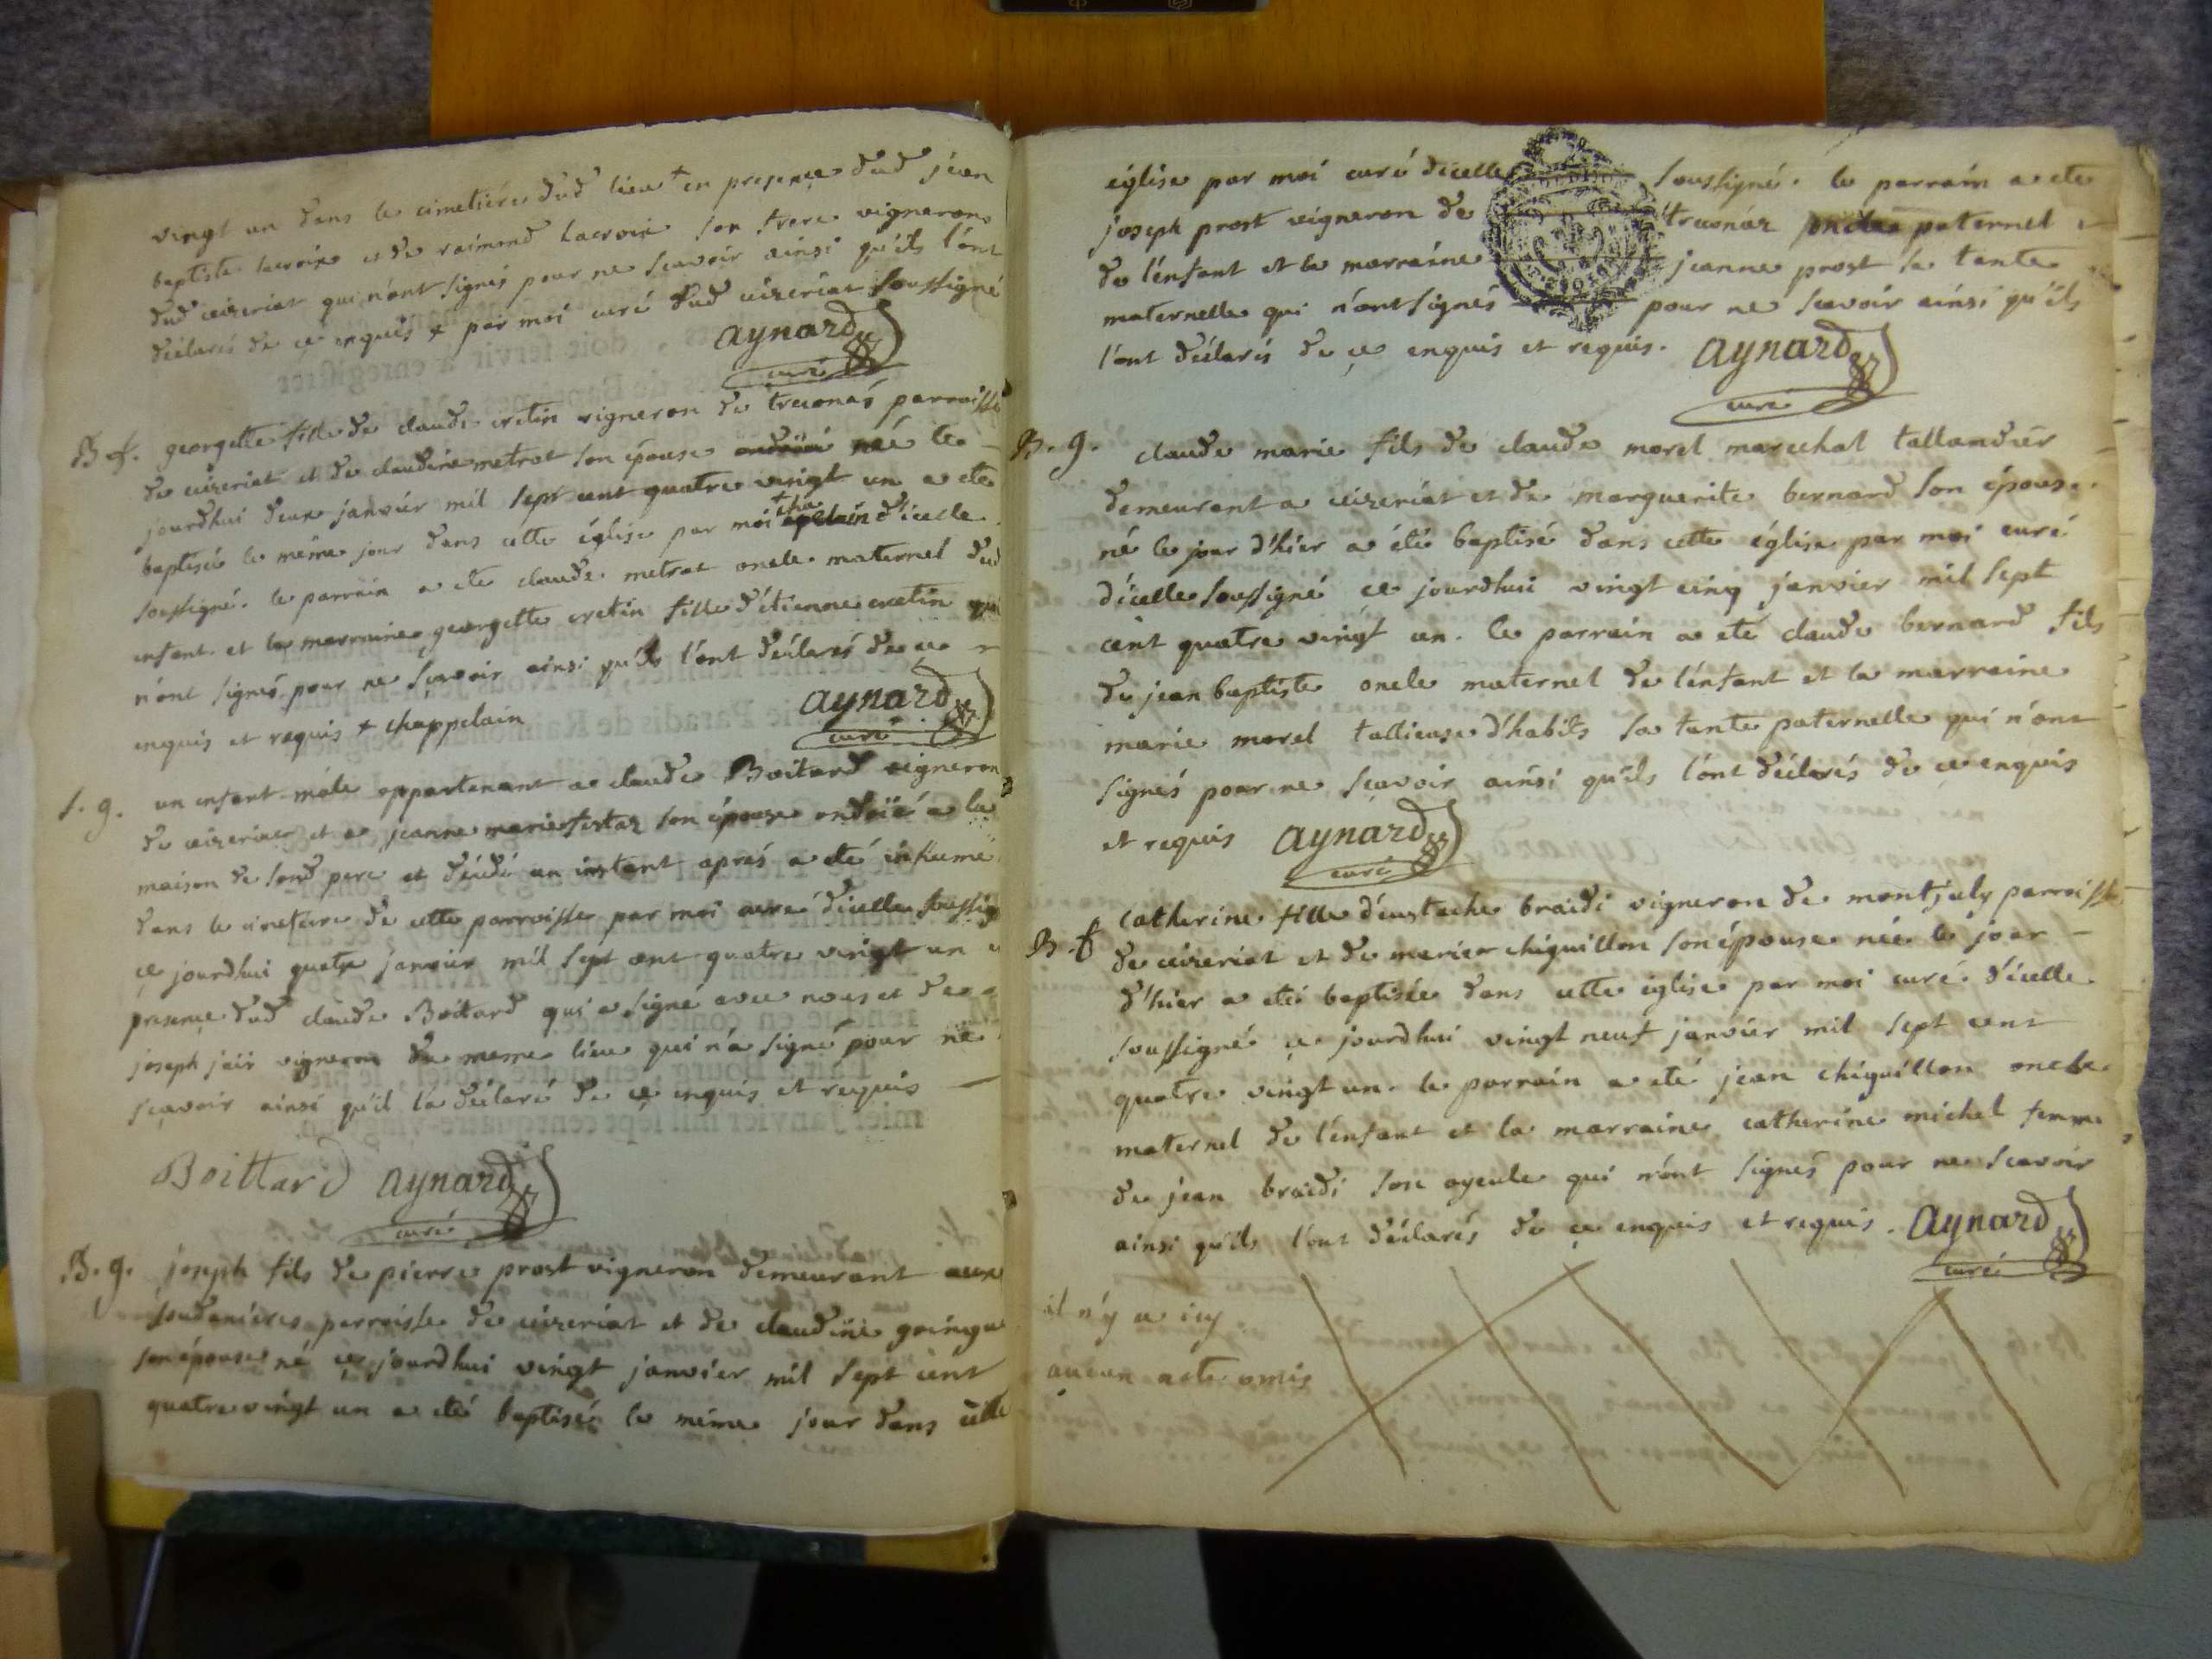 vingt un dans le cimetiére dud lieu + en presence dud jean
baptiste lacroix et de raimond Lacroix son frere vignerons
dud ceizeriat qui n'ont signés pour ne scavoir ainsi qu'ils l'ont
déclarés de ce enquis + par moi curé dud ceizeriat soussigné
aynard
curé
B f. georgette fille de claude cretin vigneron de treconas parroisse
de ceizeriat et de claudine metrat son épouse née le
jourdhui deux janvier mil sept cent quatre vingt un a ete
baptisée le même jour dans cette église par moi d'icelle
soussigné. le parrain a ete claude metrat oncle maternel dud
enfant et la marraine georgette cretin fille d'étienne cretin qui
n'ont signés pour ne sçavoir ainsi qu'ils l'ont déclarés de ce
enquis et requis + chappelain
aynard
curé
S. g. un enfant mâle appartenant a claude Boitard vigneron
de ceizeriat et a jeanne marie son épouse ondoïé a la
maison de sond pere et décédé un instant aprés a eté inhumé
dans le cimetiere de cette parroisse par moi curé dicelle soussig
ce jourdhui quatre janvier mil sept cent quatre vingt un
presence dud claude Boitard qui a signé avec nous et de
joseph vigneron du meme lieu qui n'a signé pour ne
sçavoir ainsi qu'il l'a déclaré de ce enquis et requis
Boittard aynard
curé
B. g. joseph fils de pierre prost vigneron demeurant aux
soudaniéres parroisse de ceizeriat et de claudine
son épouse né ce jourdhui vingt janvier mil sept cent
quatre vingt un a eté baptisé le même jour dans cette
église par moi curé dicelle soussigné. le parrain a ete
joseph prost vigneron de treconaz paternel
de l'enfant et la marraine jeanne prost sa tante
maternelle qui n'ont signés pour ne scavoir ainsi qu'ils
l'ont déclarés de ce enquis et requis. aynard
curé
B. g. claude marie fils de claude morel marechal tallandier
demeurant a ceizeriat et de marguerite bernard son épouse
né le jour d'hier a été baptisé dans cette église par moi curé
d'icelle soussigné ce jourdhui vingt cinq janvier mil sept
cent quatre vingt un. le parrain a eté claude bernard fils
de jean baptiste oncle maternel de l'enfant et la marraine
marie morel tallieuse d'habits sa tante paternelle qui n'ont
signés pour ne sçavoir ainsi qu'ils l'ont déclarés de ce enquis
et requis aynard
curé
B. f Catherine fille d'eustache braidi vigneron de montjuly parroisse
de ceizeriat et de marie chiquillon son épouse née le jour
d'hier a eté baptisée dans cette église par moi curé d'icelle
soussigné ce jourdhui vingt neuf janvier mil sept cent
quatre vingt un. le parrain a eté jean chiquillon oncle
maternel de l'enfant et la marraine catherine michel femme
de jean braidi son ayeule qui n'ont signés pour ne scavoir
ainsi qu'ils l'ont déclarés de ce enquis et requis. aynard
curé
il n'y a icy
aucun acte omis